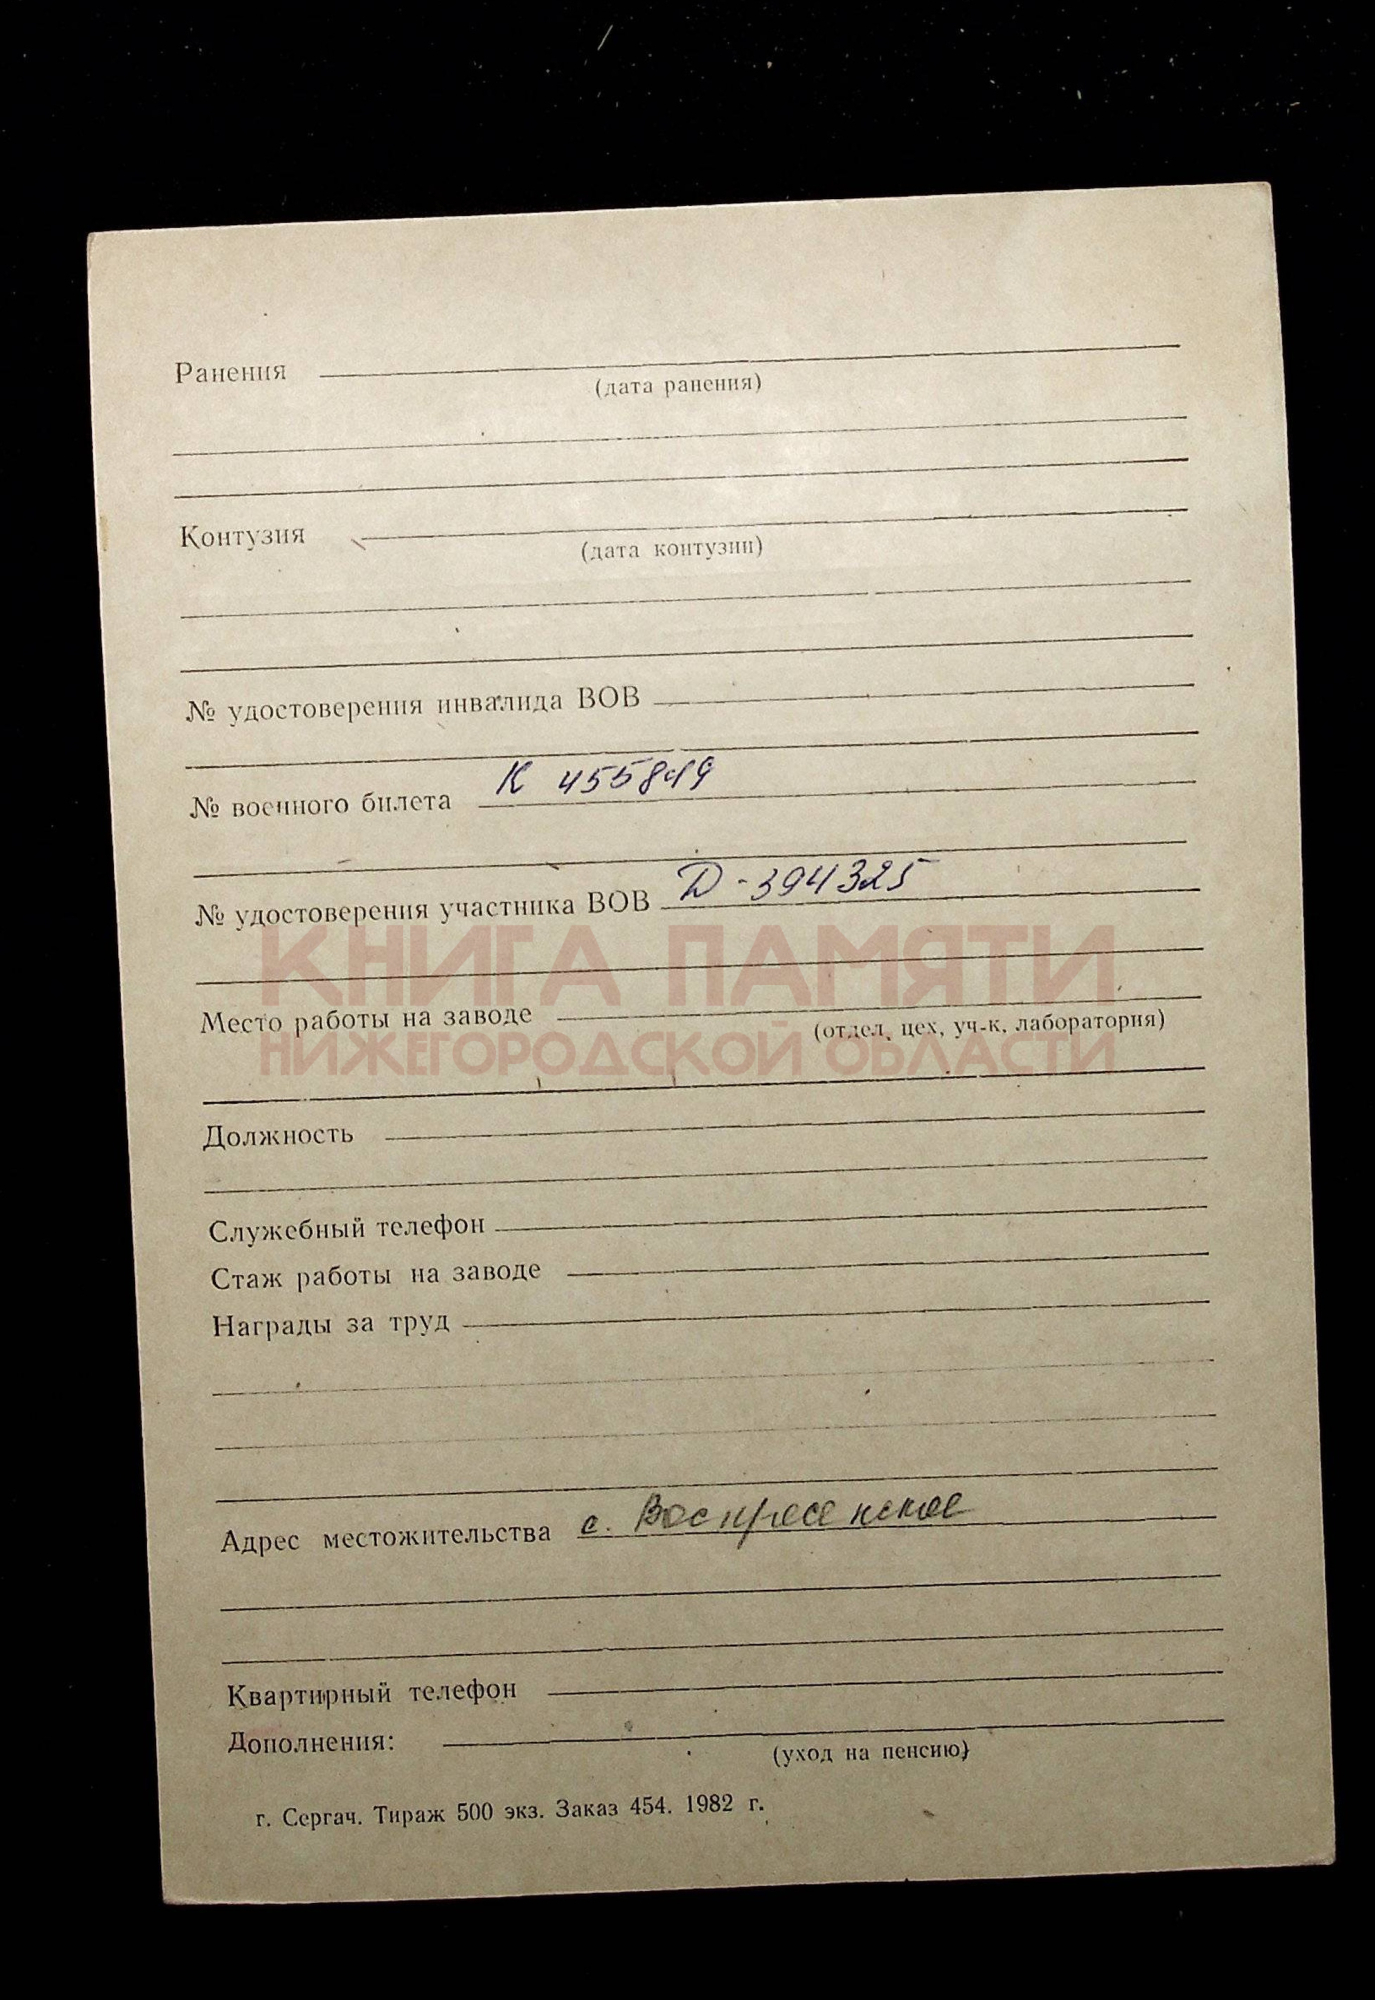 Ранения
(дата ранения)
Контузия
(дата контузии)
№ удостоверения инвалида ВОВ
№ военного билета К 455849
№ удостоверения участника ВОВ Д-394325
КНИГА ПАМЯТИ
Место работы на заводе
(отдел, цех, уч-к, лаборатория)
НИЖЕГОРОДСКОЙ ОБЛАСТИ
Должность
Служебный телефон
Стаж работы на заводе
Награды за труд
Адрес местожительства с. Воспресенское
Квартирный телефон
Дополнения:
(уход на пенсию)
г. Сергач. Тираж 500 экз. Заказ 454. 1982 г.